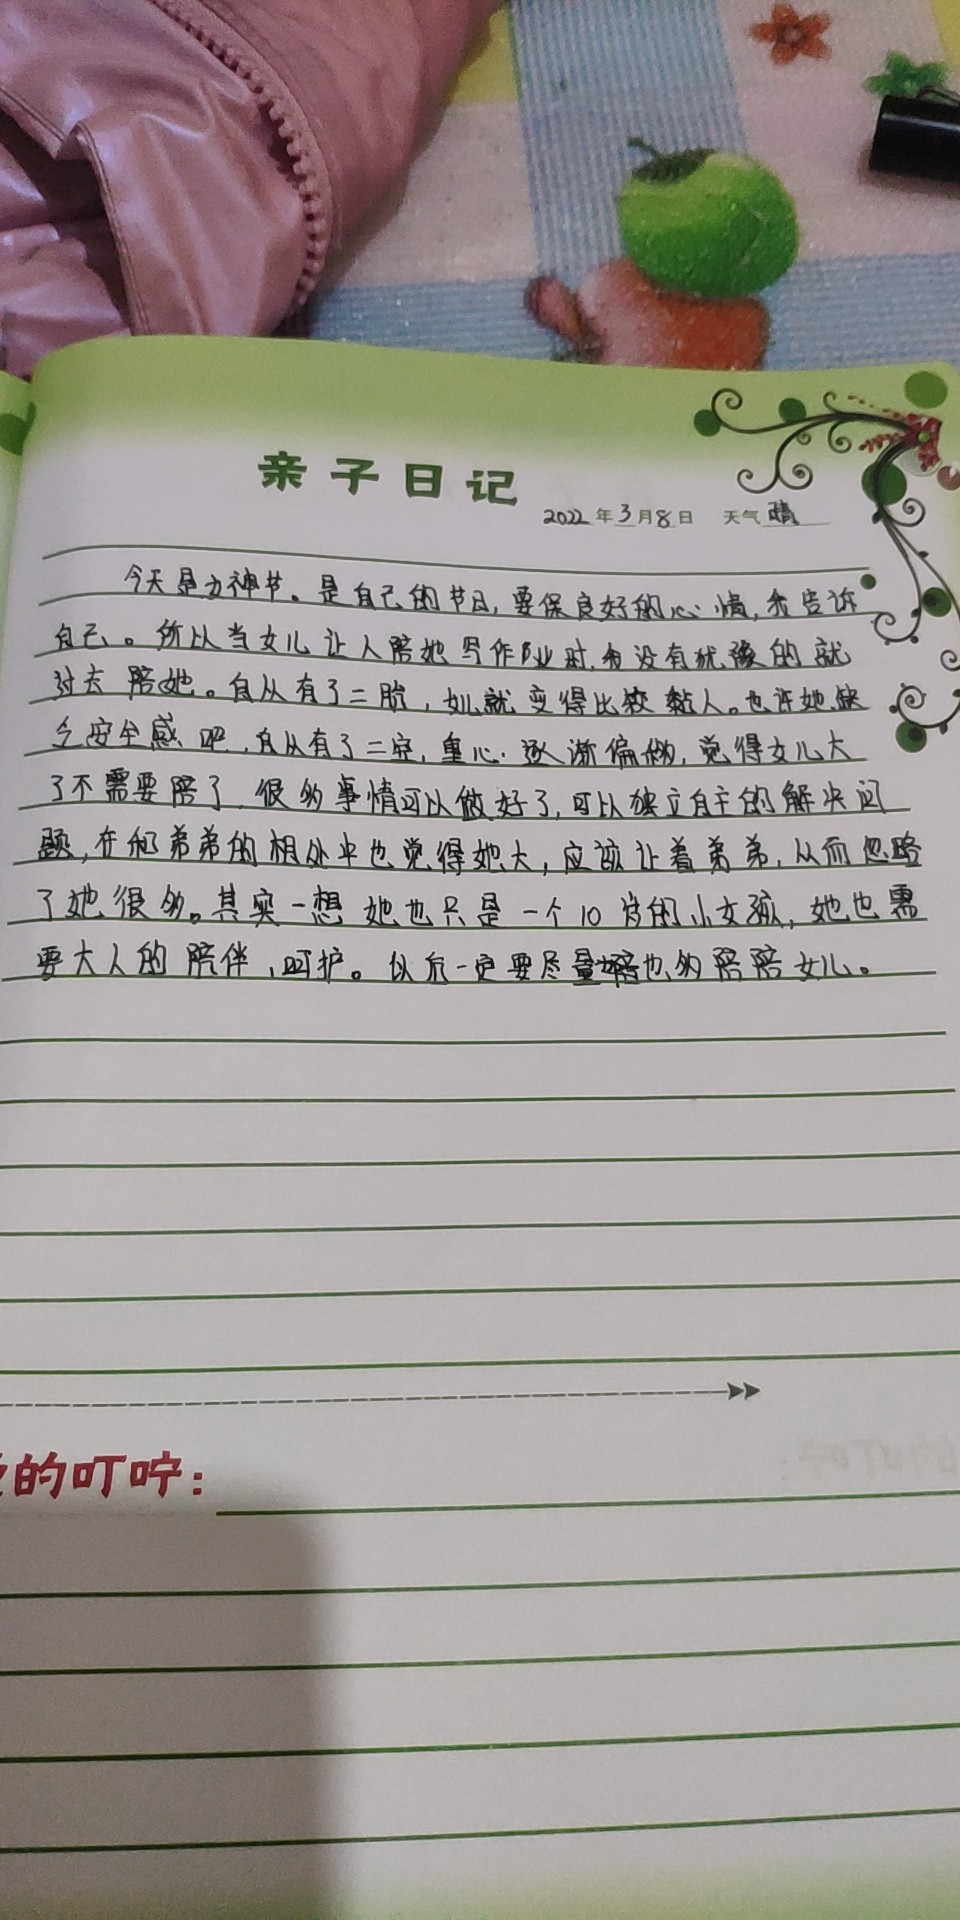 亲子日记
2022年3月8日 天气 晴
今天是女神节。是自己的节日,要保良好的心情,我告诉
自己。所以当女儿让人陪她写作业时,我没有犹豫的就
过去陪她。自从有了二胎,女儿就变得比较黏人。也许她缺
乏安全感吧,自从有了二宝,重心逐渐偏挪,觉得女儿大
了不需要陪了,很多事情可以做好了,可以独立自主的解决问
题,在和弟弟的相处中也觉得她大,应该让着弟弟,从而忽略
了她很多。其实一想她也只是一个10岁的小女孩,她也需
要大人的陪伴,呵护。以后一定要尽量也多陪陪女儿。
的叮咛: